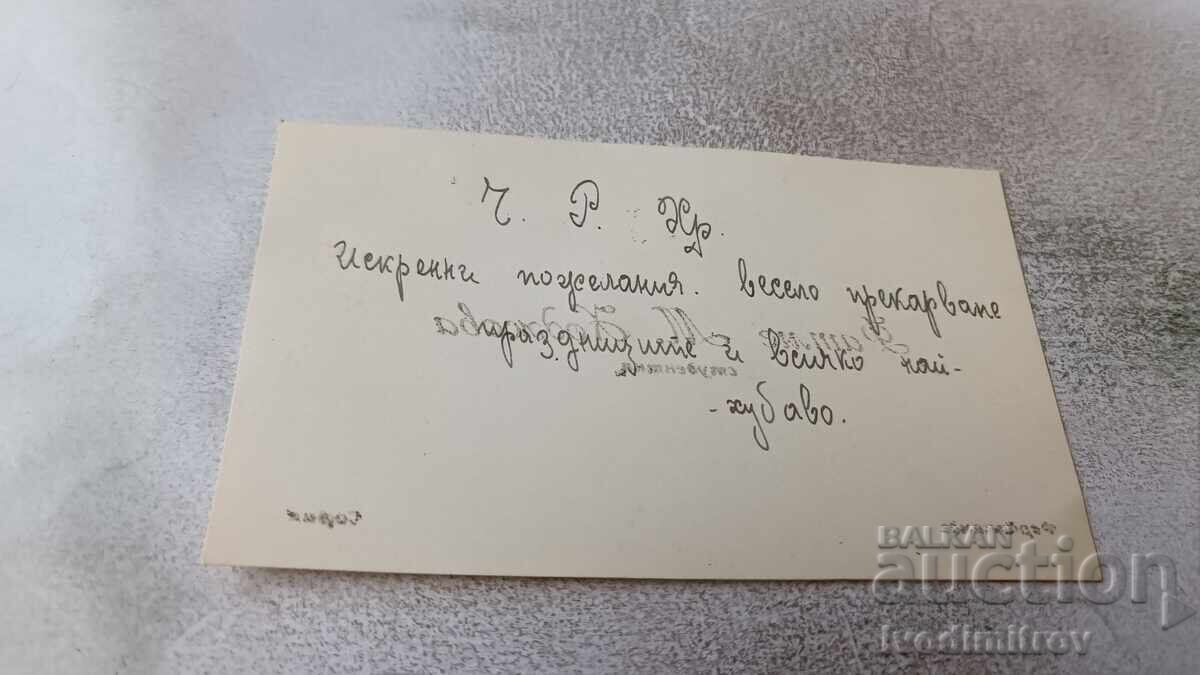 Ч. Р. Хр.
Искренни пожелания. весело прекарване
празднизите и всичко най-
-хубаво.
студентка
София
BALKAN
auction
ivodimitrov